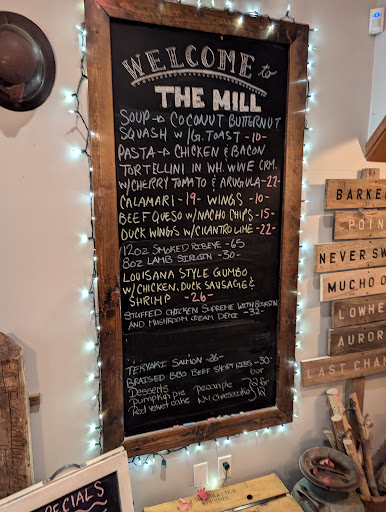 WELCOME to
THE MILL
SOUP → COCONUT BUTTERNUT
SQUASH W/G. TOAST -10-
PASTA → CHICKEN & BACON
TORTELLINI IN WH. WINE CRM.
W/CHERRY TOMATO & ARUGULA -22-
CALAMARI -19- WINGS -10-
BEEF QUESO W/NACHO CHIPS -15-
DUCK WINGS W/CILANTRO LIME -22-
12oz SMOKED RIBEYE -65
8oz LAMB SIRLOIN -30-
LOUISANA STYLE GUMBO
W/CHICKEN, DUCK SAUSAGE &
SHRIMP -26-
STUFFED CHICKEN SUPREME WITH BOURSIN
AND MUSHROOM CREAM DEMI -32-
TERYAKI SALMON -26-
BRAISED BBQ BEEF SHORT RIBS -30-
Desserts
Pumpkin pie pecan pie
Red velvet cake NY Cheesecake
BARKE
POIN
NEVER SW
MUCHO
LOWHE
AUROR
LAST CHA
SPECIALS